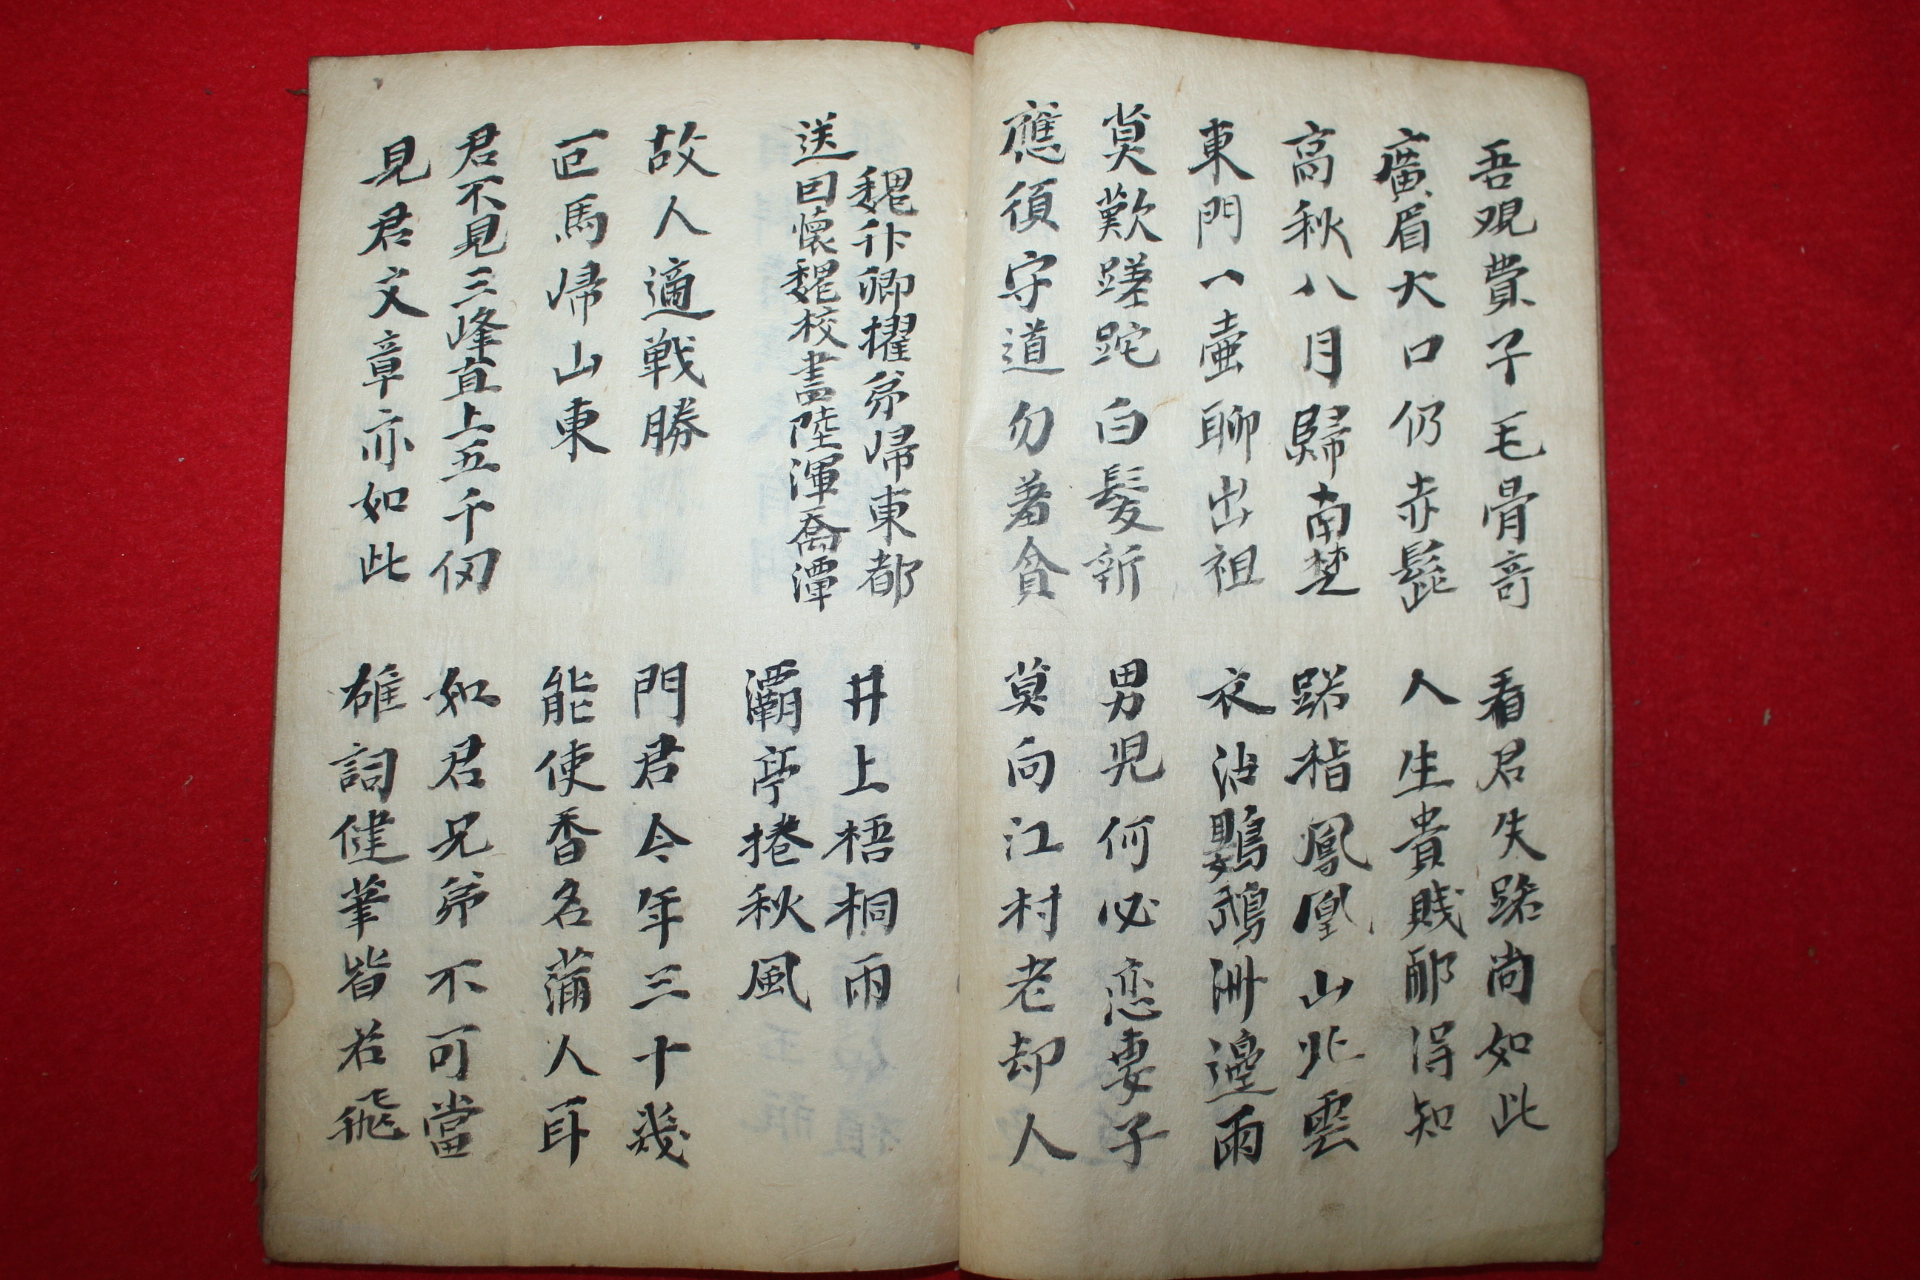 吾覌費子毛骨奇
廣眉大口仍赤髭
看君失路尚如此
人生貴賤那得知
高秋八月歸南楚
東門一壺聊出祖
路指鳳凰山北雲
衣沾鸚鵡洲邊雨
莫歎蹉跎白髮新
應須守道勿羞貧
男児何必恋妻子
莫向江村老却人
送
魏升卿擢苐帰東都
因懷魏校書陸渾喬潭
井上梧桐雨
灞亭捲秋風
故人適戦勝
匹馬帰山東
門君今年三十幾
能使香名滿人耳
君不見三峰直上五千仞
見君文章亦如此
如君兄苐不可當
雄詞健筆皆若飛